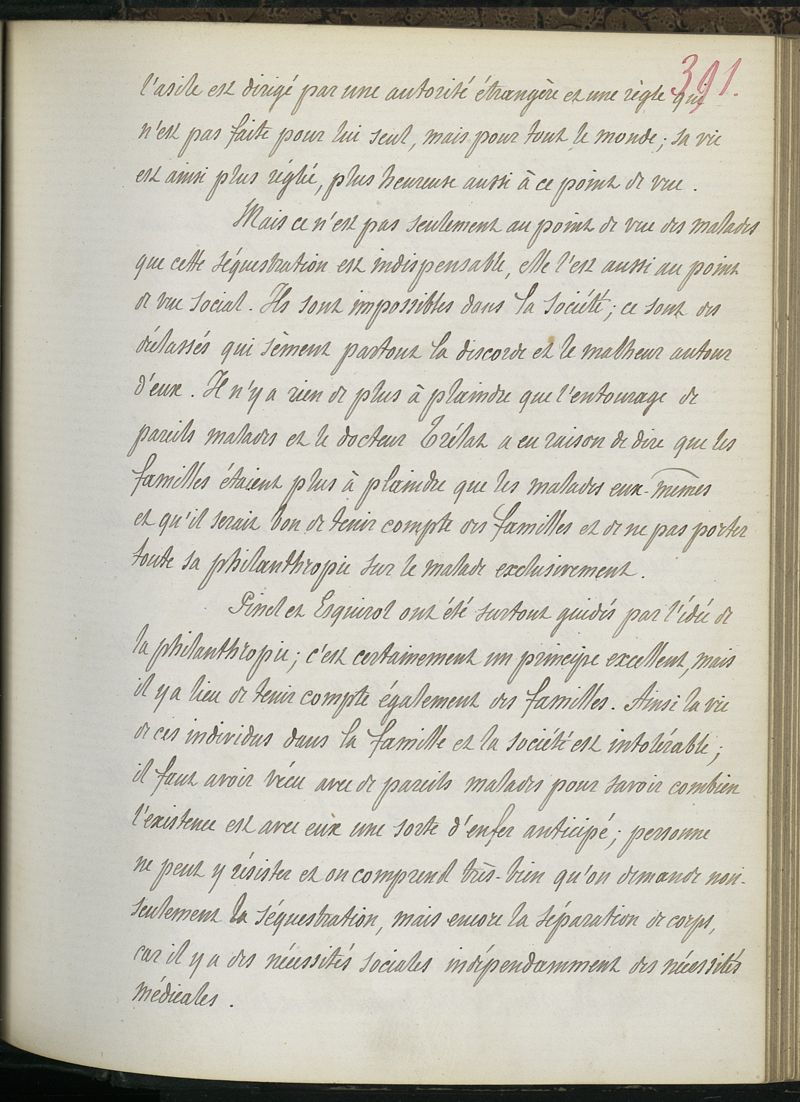 391.
l'asile est dirigé par une autorité étrangère et une règle qui
n'est pas faite pour lui seul, mais pour tout le monde; sa vie
est ainsi plus réglée, plus heureuse aussi à ce point de vue.
Mais ce n'est pas seulement au point de vue des malades
que cette séquestration est indispensable, elle l'est aussi au point
de vue social. Ils sont impossibles dans la société; ce sont des
déclassés qui sèment partout la discorde et le malheur autour
d'eux. Il n'y a rien de plus à plaindre que l'entourage de
pareils malades et le docteur Trélat a eu raison de dire que les
familles étaient plus à plaindre que les malades eux-mêmes
et qu'il serait bon de tenir compte des familles et de ne pas porter
toute sa philanthropie sur le malade exclusivement.
Pinel et Esquirol ont été surtout guidés par l'idée de
la philanthropie; c'est certainement un principe excellent, mais
il y a lieu de tenir compte également des familles. Ainsi la vie
de ces individus dans la famille et la société est intolérable;
il faut avoir vécu avec de pareils malades pour savoir combien
l'existence est avec eux une sorte d'enfer anticipé; personne
ne peut y résister et on comprend très-bien qu'on demande non-
seulement la séquestration, mais encore la séparation de corps,
car il y a des nécessités sociales indépendamment des nécessités
médicales.